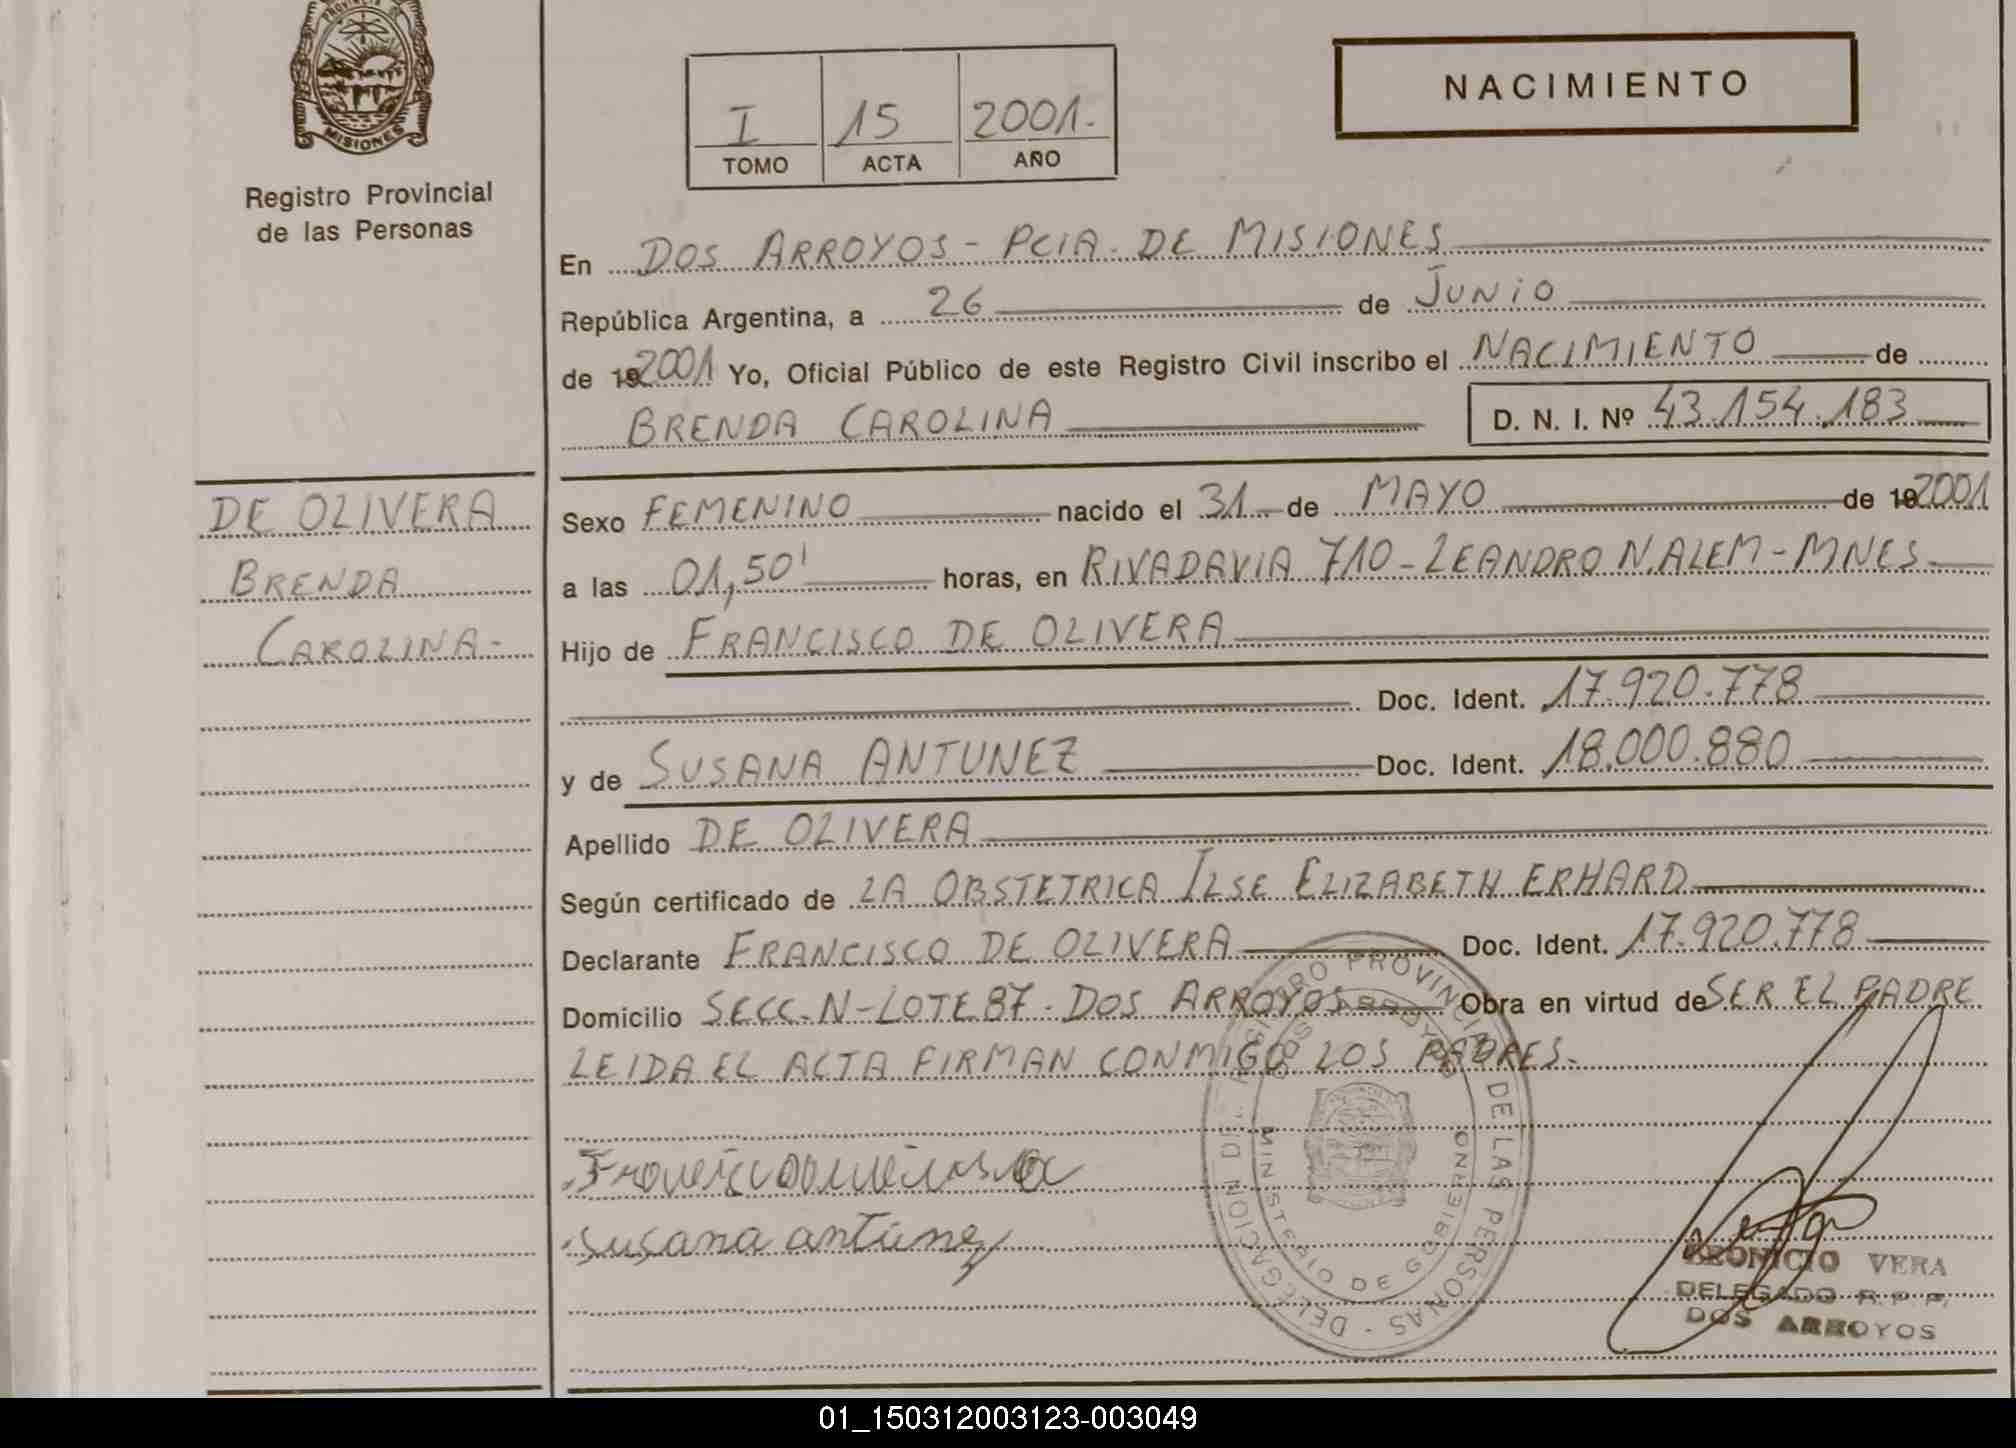 PROVINCIA DE
MISIONES
Registro Provincial
de las Personas
I 15 2001.
TOMO ACTA AÑO
NACIMIENTO
En DOS ARROYOS - PCIA. DE MISIONES
República Argentina, a 26 de JUNIO
de 192001 Yo, Oficial Público de este Registro Civil inscribo el NACIMIENTO de
BRENDA CAROLINA D. N. I. Nº 43.154.183
DE OLIVERA
BRENDA
CAROLINA-
Sexo FEMENINO nacido el 31 de MAYO de 192001
a las 01,50' horas, en RIVADAVIA 710 - LEANDRO N. ALEM - MNES
Hijo de FRANCISCO DE OLIVERA
Doc. Ident. 17.920.778
y de SUSANA ANTUNEZ Doc. Ident. 18.000.880
Apellido DE OLIVERA
Según certificado de LA OBSTETRICA ILSE ELIZABETH ERHARD
Declarante FRANCISCO DE OLIVERA Doc. Ident. 17.920.778
Domicilio SECC. N - LOTE 87 - DOS ARROYOS Obra en virtud de SER EL PADRE
LEIDA EL ACTA FIRMAN CONMIGO LOS PADRES-
susana antúnez
REGISTRO PROVINCIAL DE LAS PERSONAS - DELEGACION
DOS ARROYOS
MINISTERIO DE GOBIERNO
LEONICIO VERA
DELEGADO R. P. P.
DOS ARROYOS
01_150312003123-003049